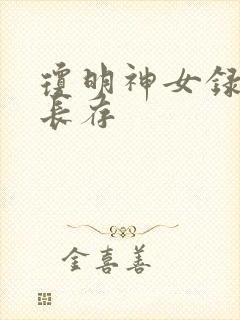 琼明神女録
长存
金喜善